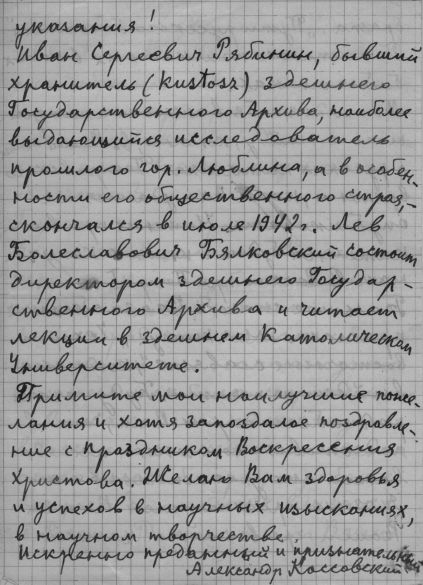 указания!
Иван Сергеевич Рябинин, бывший
хранитель (kustosz) здешнего
Государственного Архива, наиболее
выдающийся исследователь
прошлого гор. Люблина, а в особен-
ности его общественного строя,-
скончался в июле 1942 г. Лев
Болеславович Бялковский состоит
директором здешнего Государ-
ственного Архива и читает
лекции в здешнем Католическом
Университете.
Примите мои наилучшие поже-
лания и хотя запоздалое поздравле-
ние с праздником Воскресения
Христова. Желаю Вам здоровья
и успехов в научных изысканиях,
в научном творчестве.
Искренно преданный и признательный
Александр Коссовский